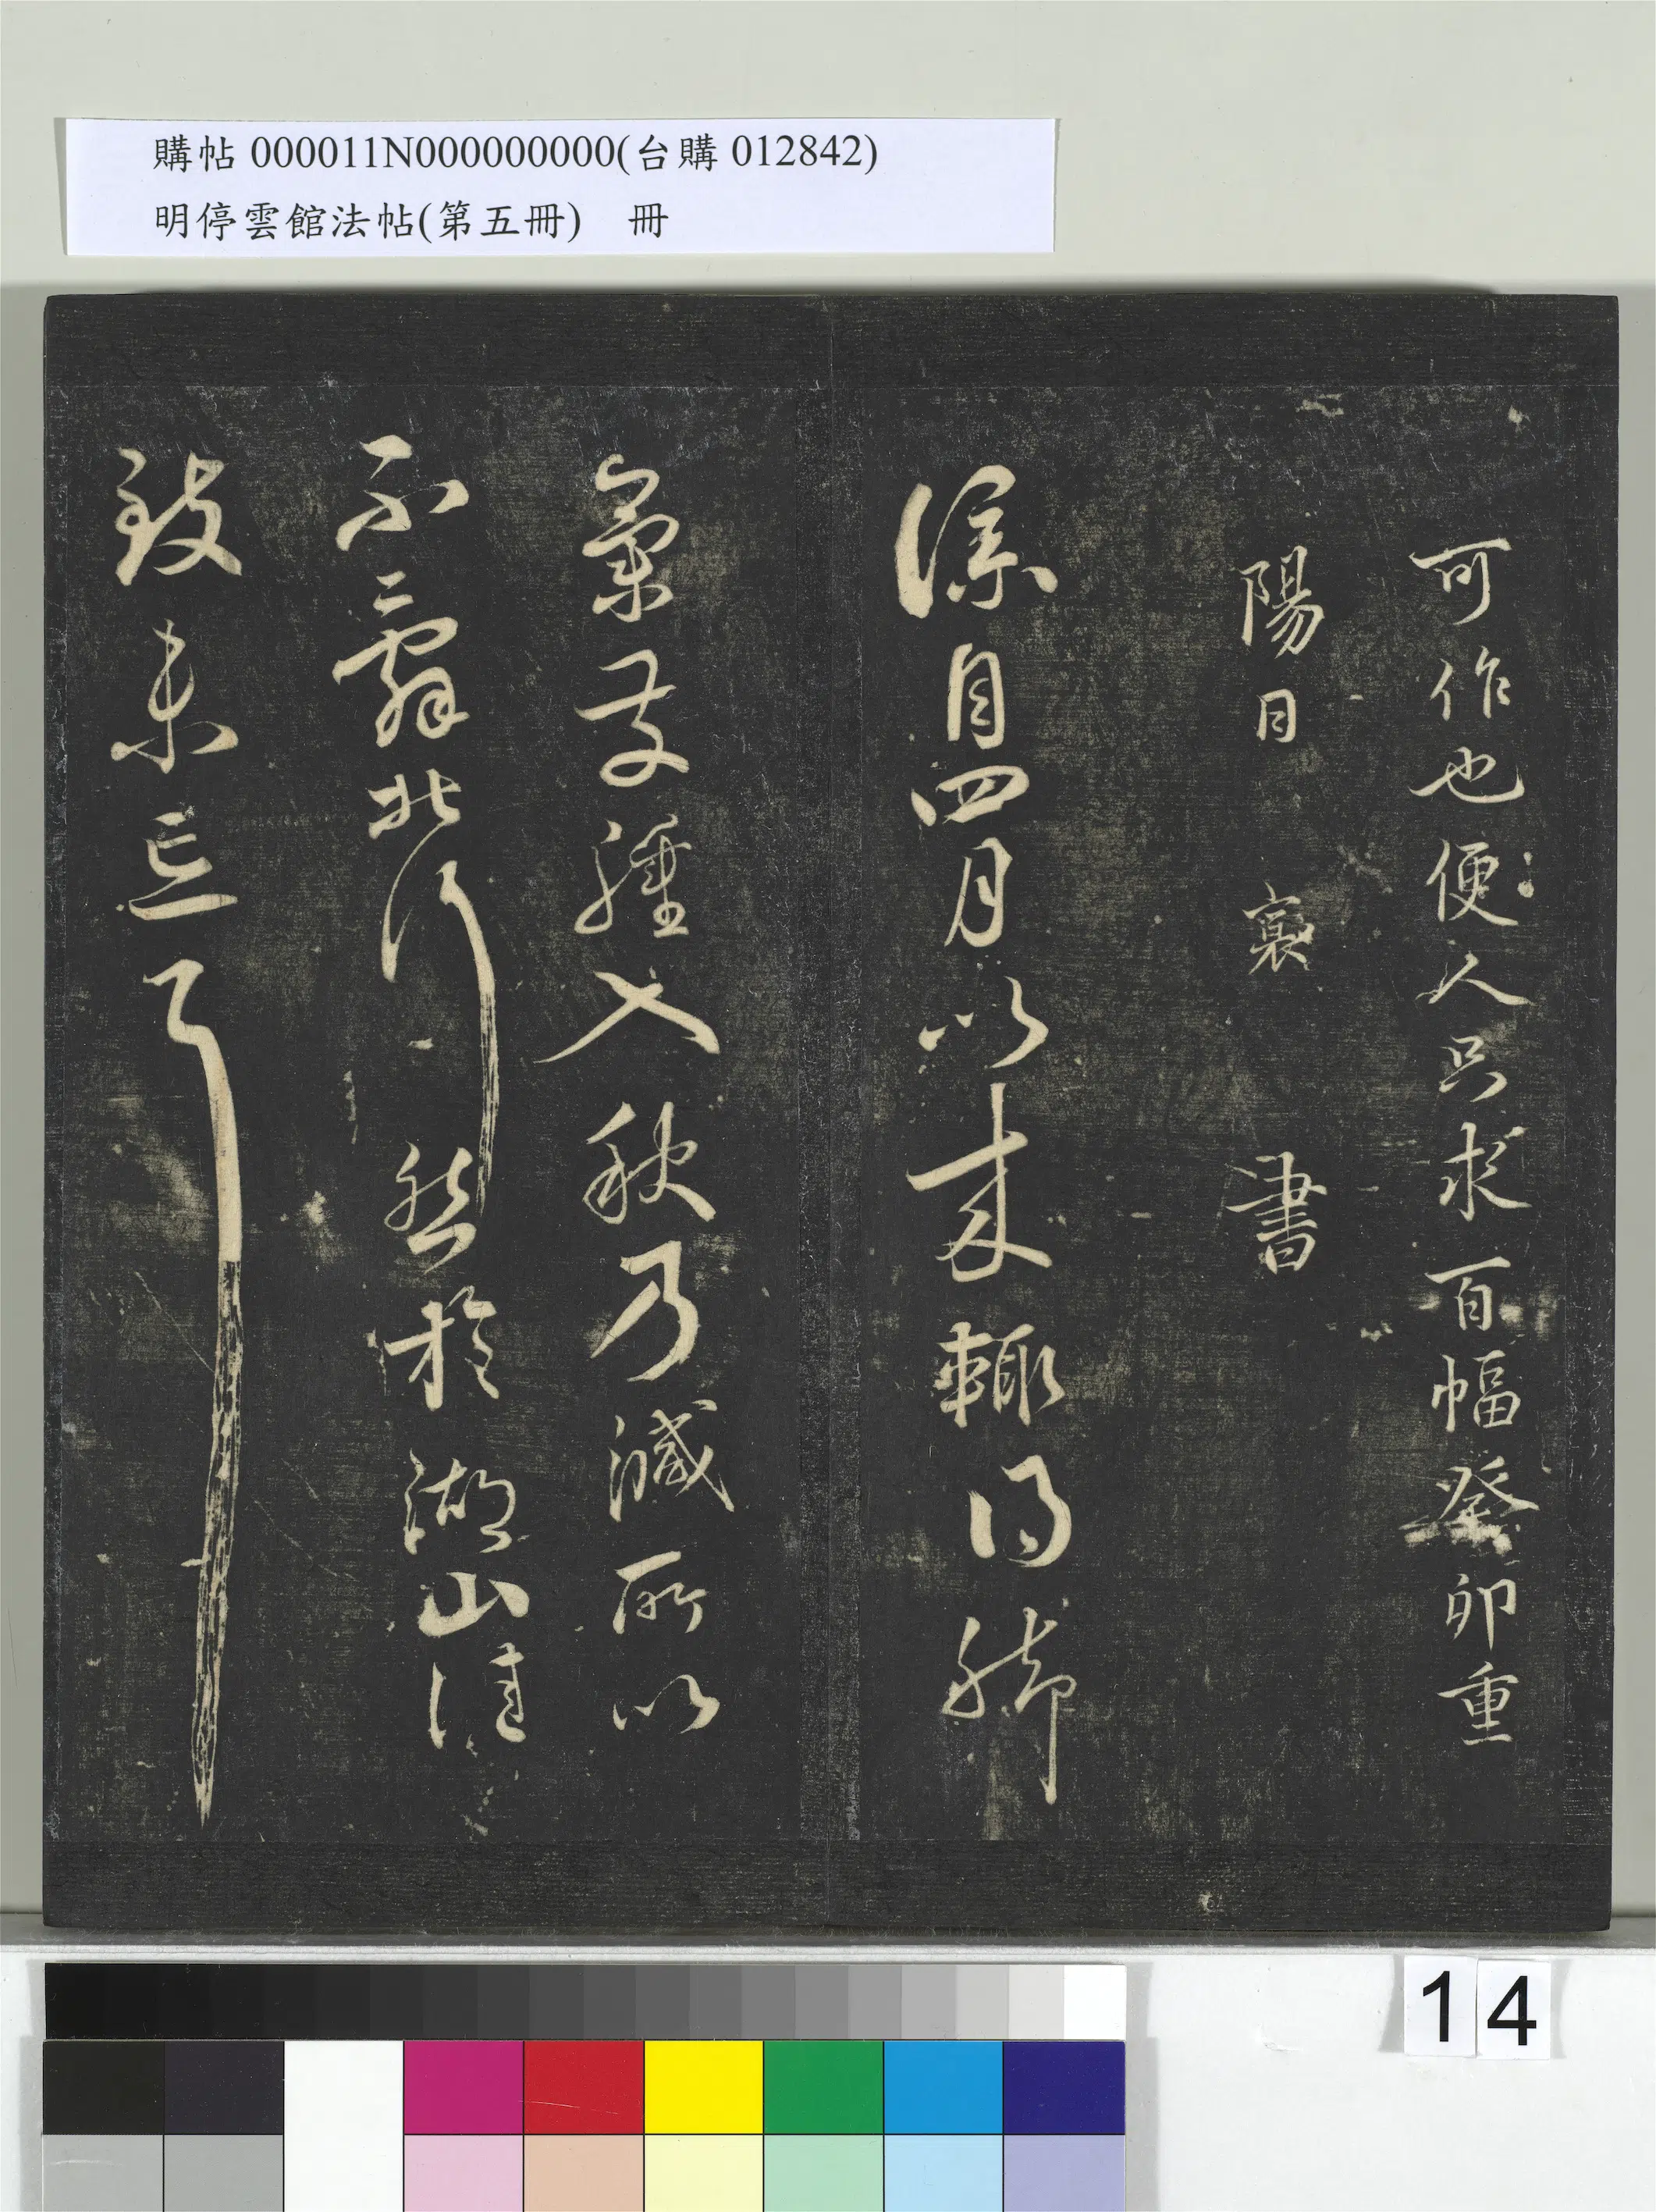 購帖 000011N000000000(台購 012842)
明停雲館法帖(第五冊) 冊
可作也便人只求百幅癸卯重
陽日 襄 書
僕自四月以來輒得腳
氣發腫入秋乃減所以
不辭北行然於湖山佳
致未忘耳
14